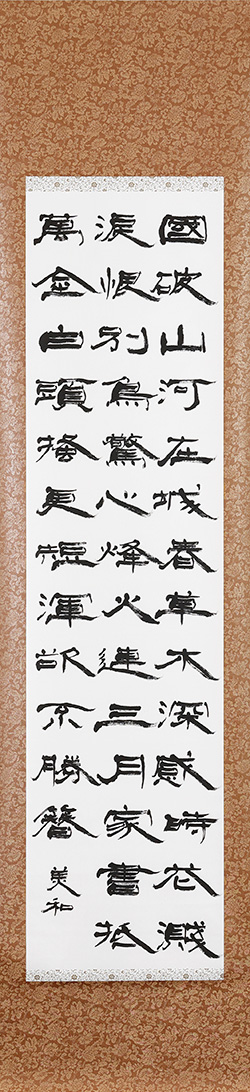 國破山河在城春草木深感時花濺
淚恨別鳥驚心烽火連三月家書抵
萬金白頭搔更短渾欲不勝簪
美和